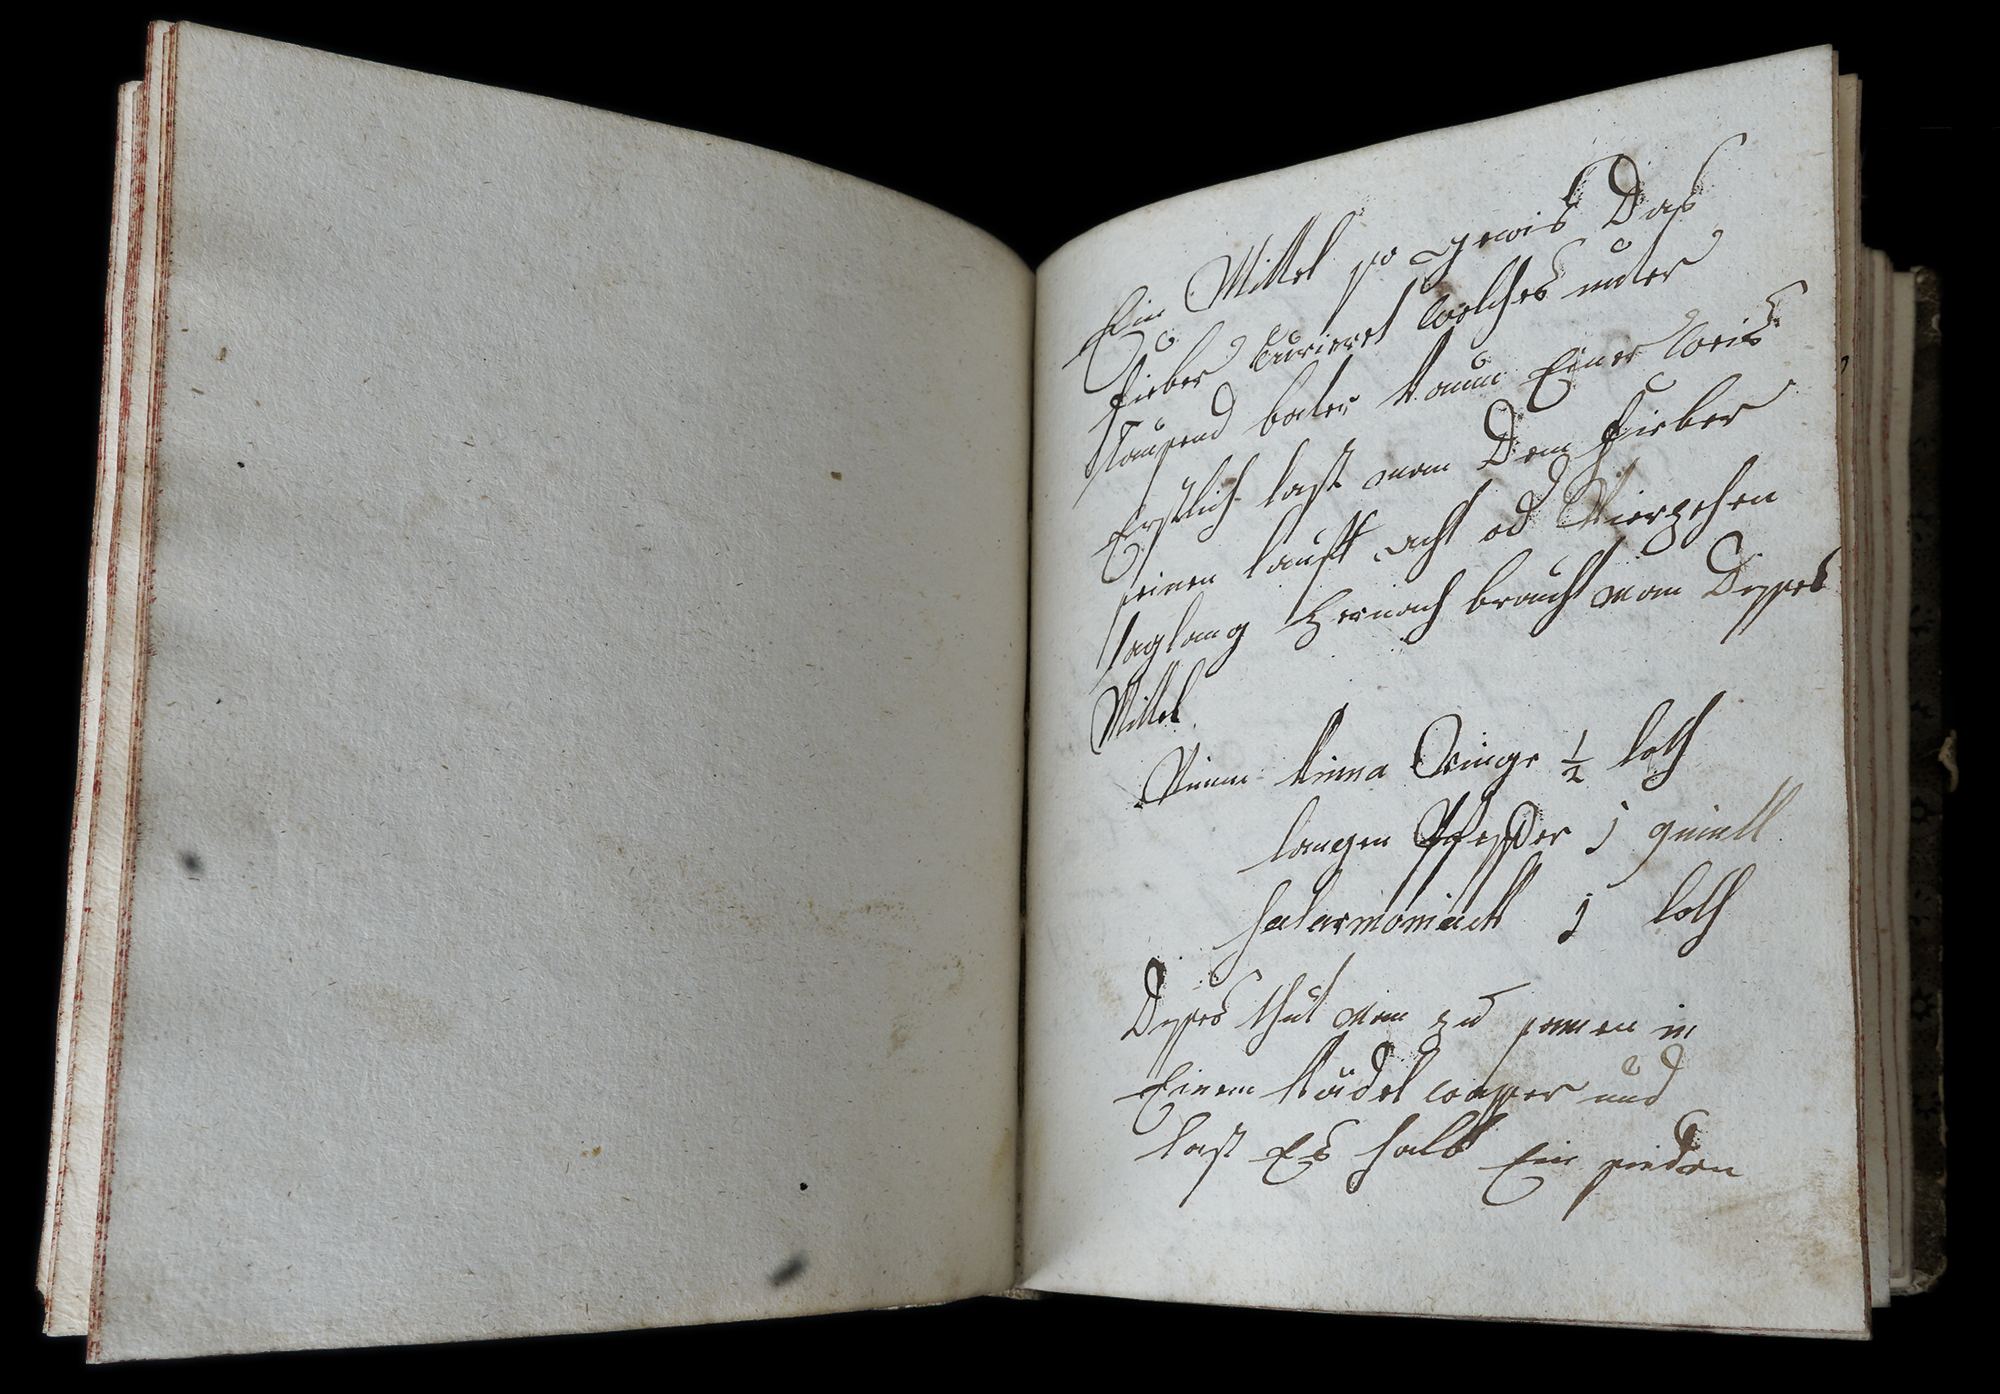 Ein Mittel so gewis Das
fieber Curieret welches unter
Tausend bater kaum Einer weis
Erstlich last man Dem fieber
seinen lauff acht od Vierzehen
taglang Hernach braucht man Dyses
Mittel
Nimm kinna Ringe ½ loth
langen Pfeffer j quintl
salarmoniack j loth
Dyses thut man zu samen in
Einem wasser und
last Es halb Ein sieden